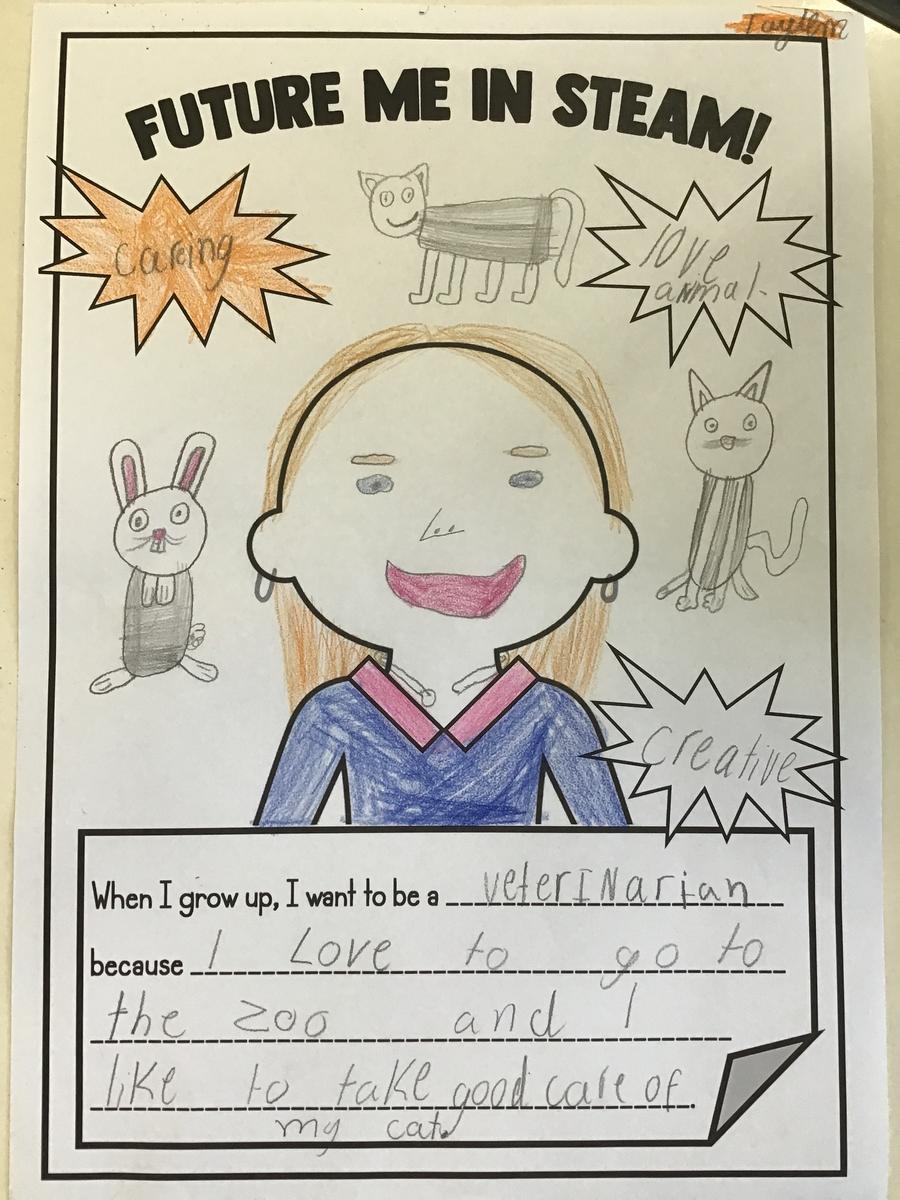 FUTURE ME IN STEAM!
caring
love
animal.
creative
When I grow up, I want to be a veterINarian
because I Love to go to
the zoo and I
like to take good care of.
my cats